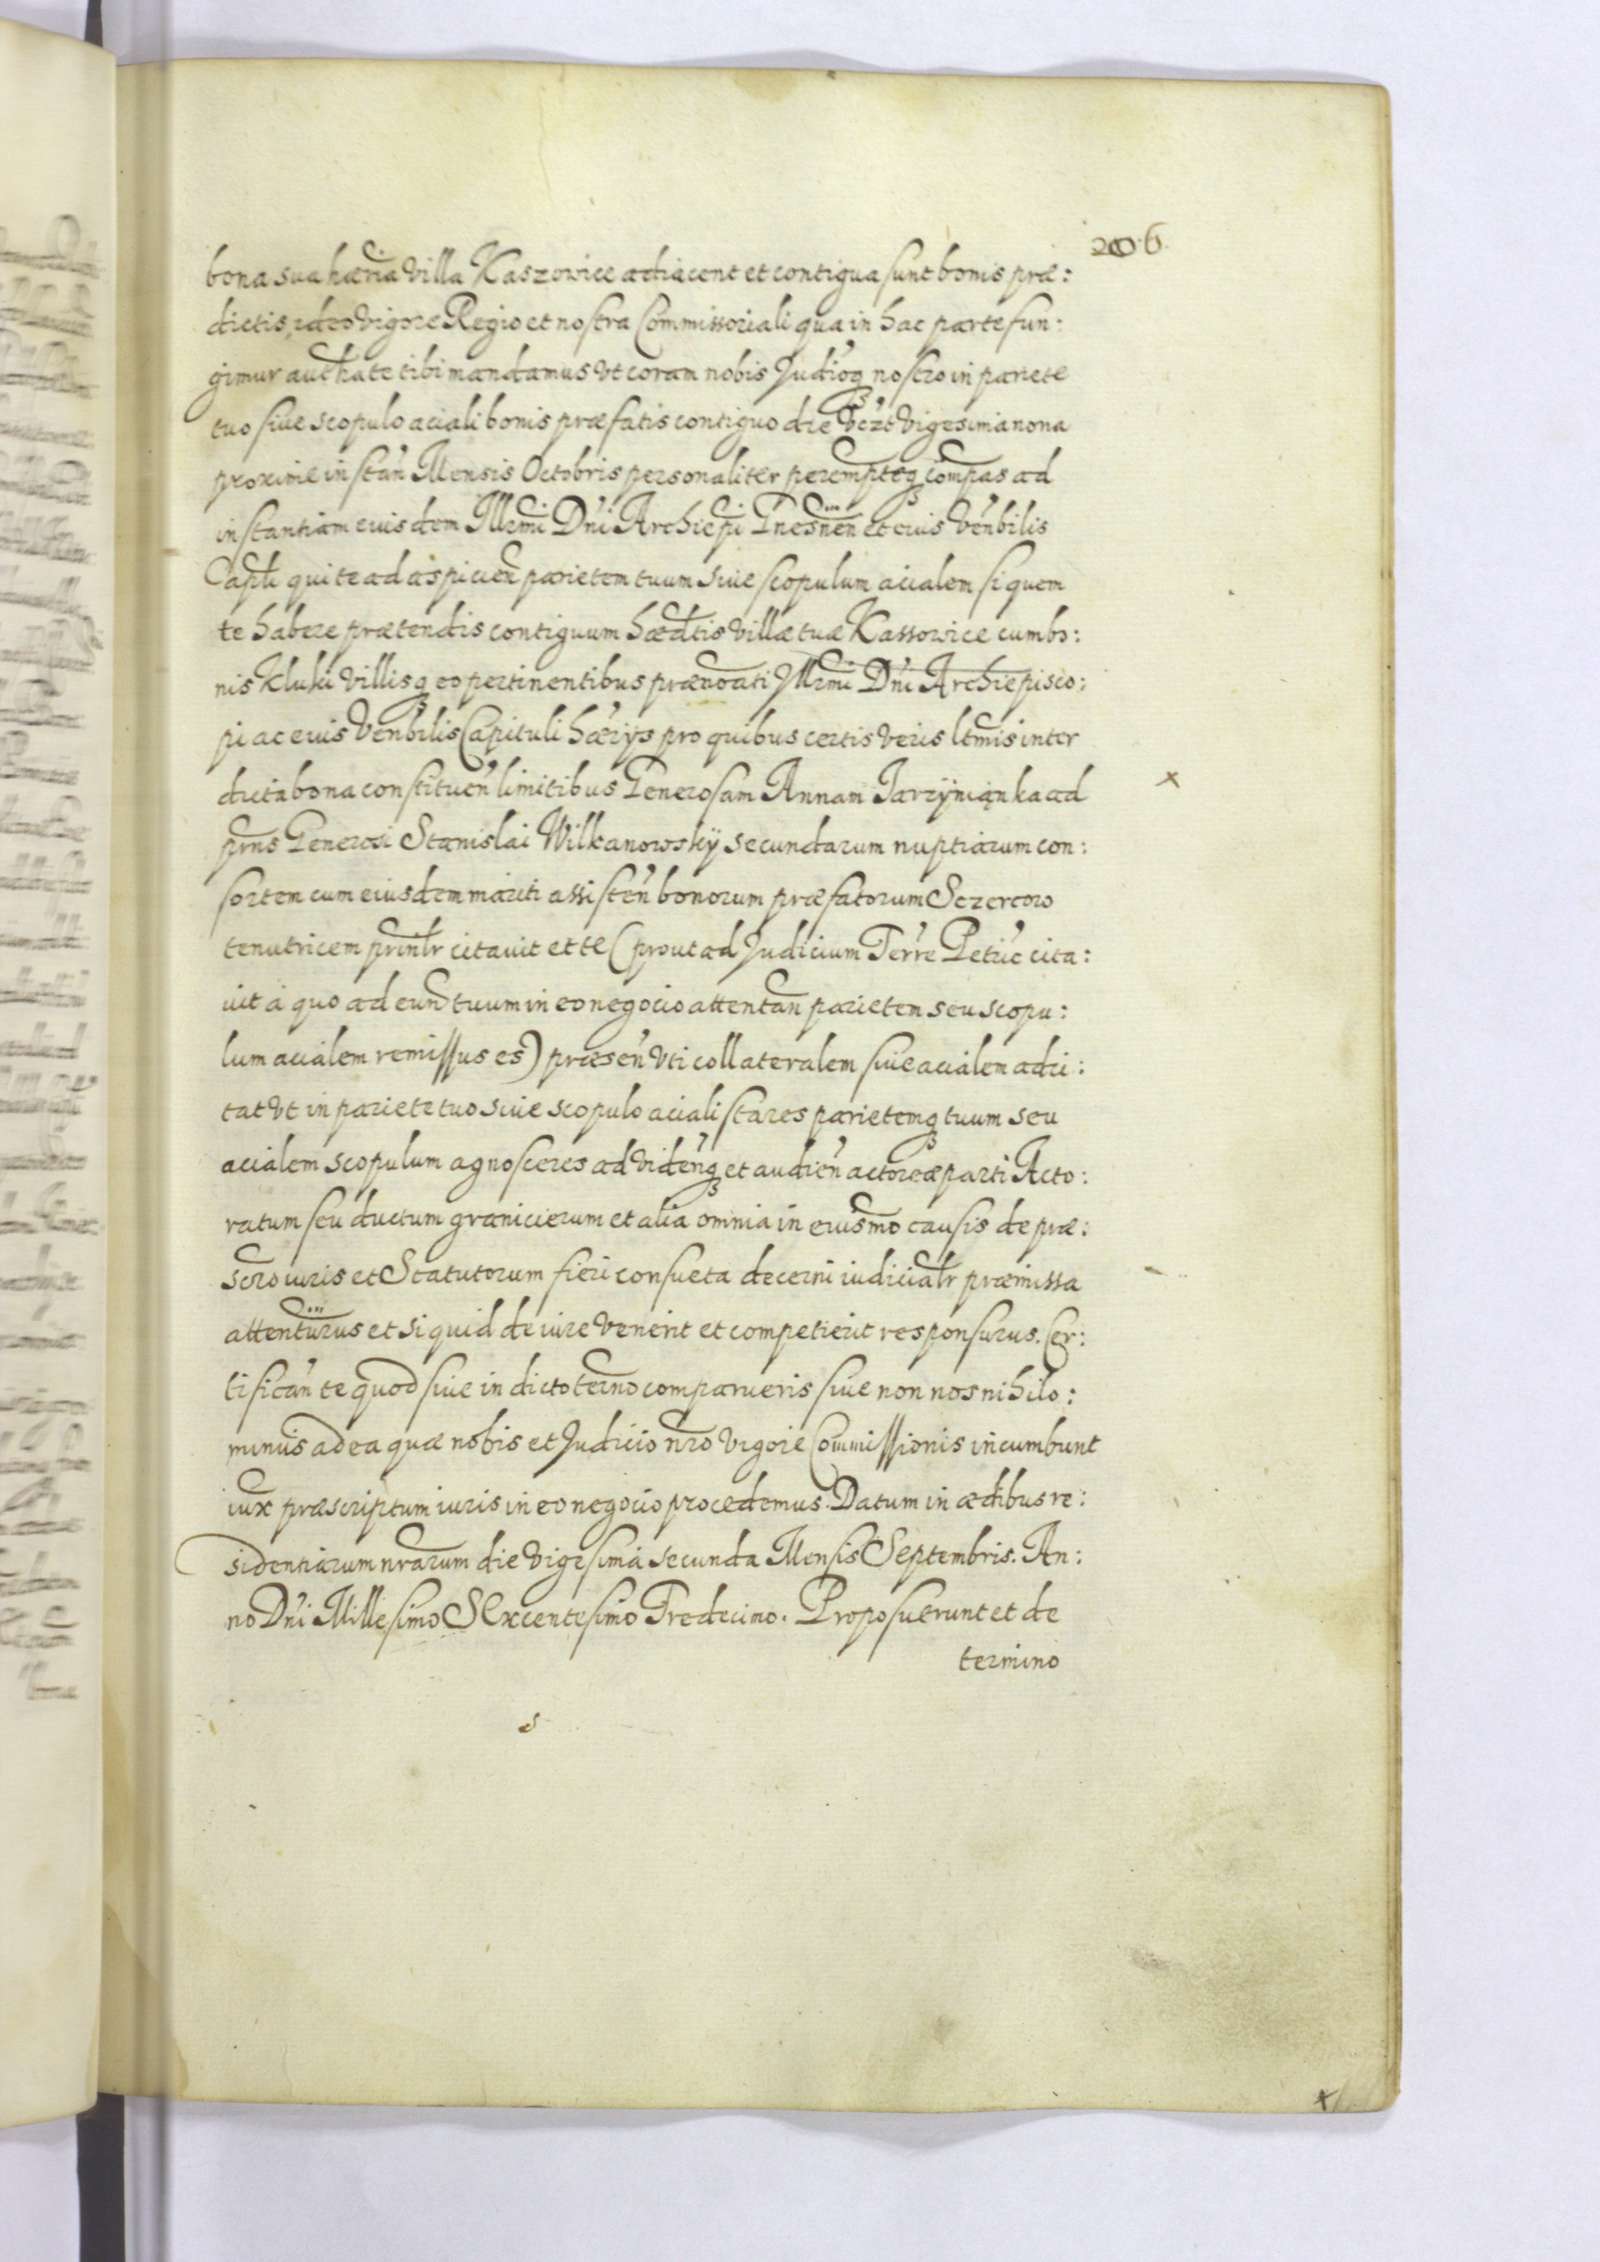 206
bona sua hæria villa Kaszowice adiacent et contigua sunt bonis præ:
dictis, ideo vigore Regio et nostra Commissoriali qua in hac parte fun:
gimur authate tibi mandamus vt coram nobis Judioq nostro in pariete
tuo siue scopulo aciali bonis præfatis contiguo die vczt vigesima nona
proxime instan Mensis Octobris personaliter perempteq compas ad
instantiam eiusdem Illrmi Dni Archiepi Gnesnen et eius Venbilis
Capli qui te ad aspicien parietem tuum siue scopulum acialem si quem
te habere prætendis contiguum hædtis villæ tuæ Kassowice cum bo:
nis Kluki villisq eo pertinentibus prænoati Jllrmi Dni Archiepisco:
pi ac eius Venbilis Capituli hærijs pro quibus certis veris ltmis inter
dicta bona constituen limitibus Generosam Annam Jarzyniąnka ad
prns Generosi Stanislai Wilkanowskÿ secundarum nuptiarum con:
sortem cum eiusdem mariti assisten bonorum præfatorum Sczercow
tenutricem prinlr citauit et te (prout ad Judicium Terre Petric cita:
uit à quo ad eund tuum in eo negocio attentan parietem seu scopu:
lum acialem remissus es) præsen vti collateralem siue acialem adci:
tat vt in pariete tuo siue scopulo aciali stares parietemq tuum seu
acialem scopulum agnosceres ad videnq et audien actoreæ parti Acto:
ratum seu ductum granicierum et alia omnia in eiusmo causis de præ:
scro iuris et Statutorum fieri consueta decerni iudicialr præmissa
attenturus et si quid de iure venerit et competierit responsurus. Cer:
tifican te quod siue in dicto termo comparueris siue non nos nihilo:
minus ad ea quæ nobis et Judicio nro vigore Commissionis incumbunt
iux præscriptum iuris in eo negocio procedemus. Datum in ædibus re:
sidentiarum nrarum die vigesima secunda Mensis Septembris. An:
no Dni Millesimo Sexcentesimo Tredecimo. Proposuerunt et de
termino